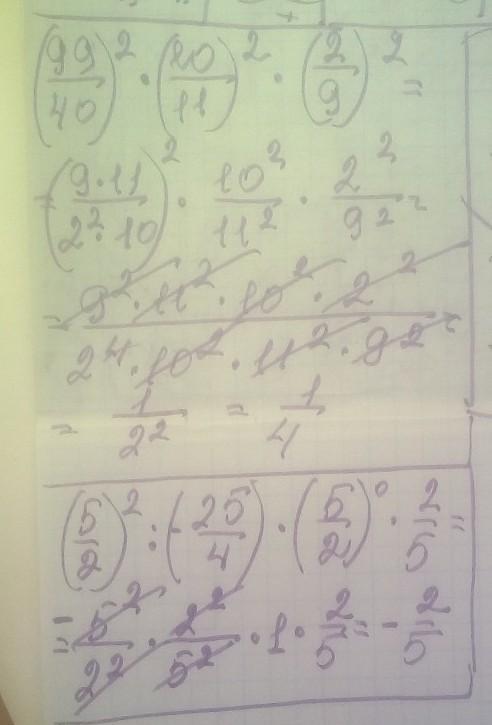 (99/40)² · (10/11)² · (2/9)² =
= (9·11/2²·10)² · 10²/11² · 2²/9² =
= 9²·11²·10²·2²/2⁴·10²·11²·9² =
= 1/2² = 1/4
(5/2)² : (-25/4) · (5/2)⁰ · 2/5 =
= -5²/2² · 2²/5² · 1 · 2/5 = -2/5